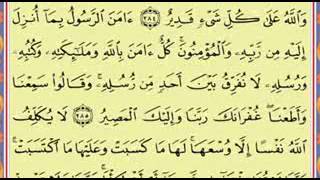 وَٱللَّهُ عَلَىٰ كُلِّ شَىْءٍ قَدِيرٌ ﴿٢٨٤﴾ ءَامَنَ ٱلرَّسُولُ بِمَآ أُنزِلَ
إِلَيْهِ مِن رَّبِّهِۦ وَٱلْمُؤْمِنُونَ ۚ كُلٌّ ءَامَنَ بِٱللَّهِ وَمَلَـٰٓئِكَتِهِۦ وَكُتُبِهِۦ
وَرُسُلِهِۦ لَا نُفَرِّقُ بَيْنَ أَحَدٍ مِّن رُّسُلِهِۦ ۚ وَقَالُوا۟ سَمِعْنَا
وَأَطَعْنَا ۖ غُفْرَانَكَ رَبَّنَا وَإِلَيْكَ ٱلْمَصِيرُ ﴿٢٨٥﴾ لَا يُكَلِّفُ
ٱللَّهُ نَفْسًا إِلَّا وُسْعَهَا ۚ لَهَا مَا كَسَبَتْ وَعَلَيْهَا مَا ٱكْتَسَبَتْ ۗ